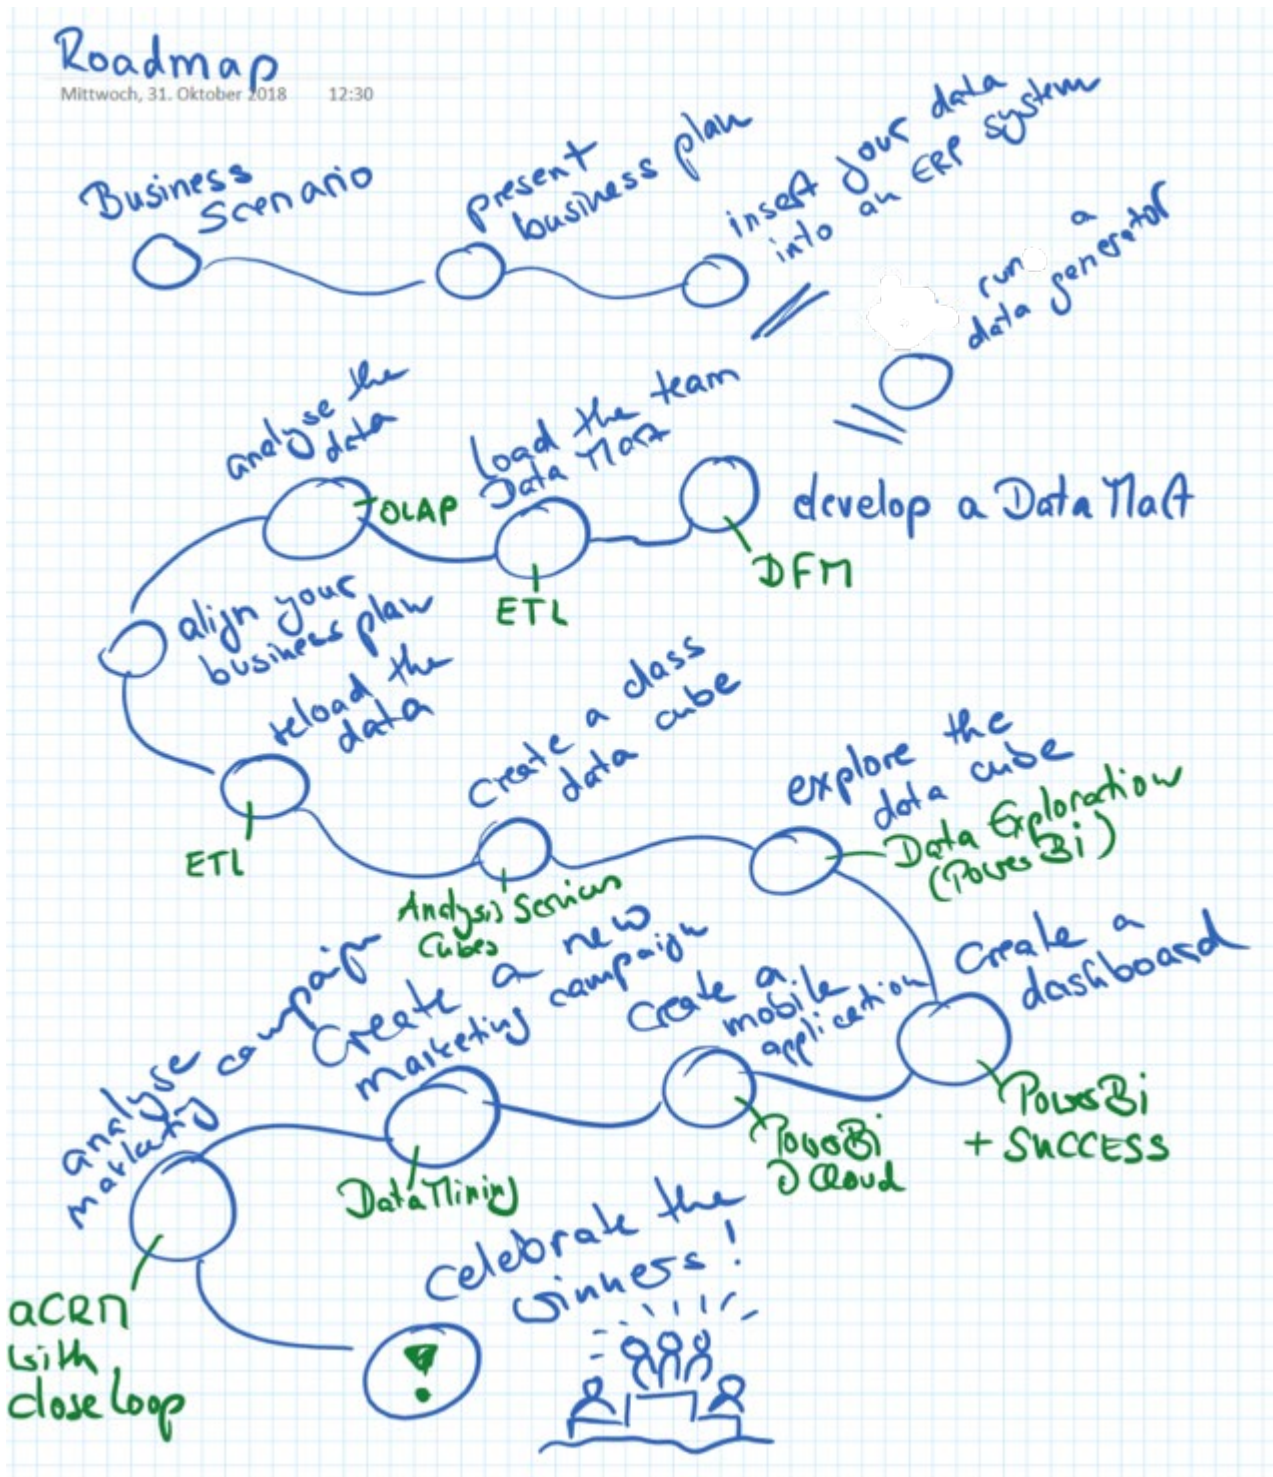 Roadmap
Mittwoch, 31. Oktober 2018 12:30
Business
Scenario
present
business plan
insert your data
into an ERP system
run a
data generator
develop a Data Mart
DFM
Load the team
Data Mart
ETL
analyse the
data
OLAP
align your
business plan
reload the
data
ETL
create a class
data cube
Analysis Services
Cubes
explore the
data cube
Data Exploration
(Power Bi)
create a
dashboard
PowerBi
+ SUCCESS
create a
mobile
application
PowerBi
Cloud
Create a new
marketing campaign
Data Mining
analyse campaign
marketing
aCRM
with
close loop
celebrate the
winners!
!